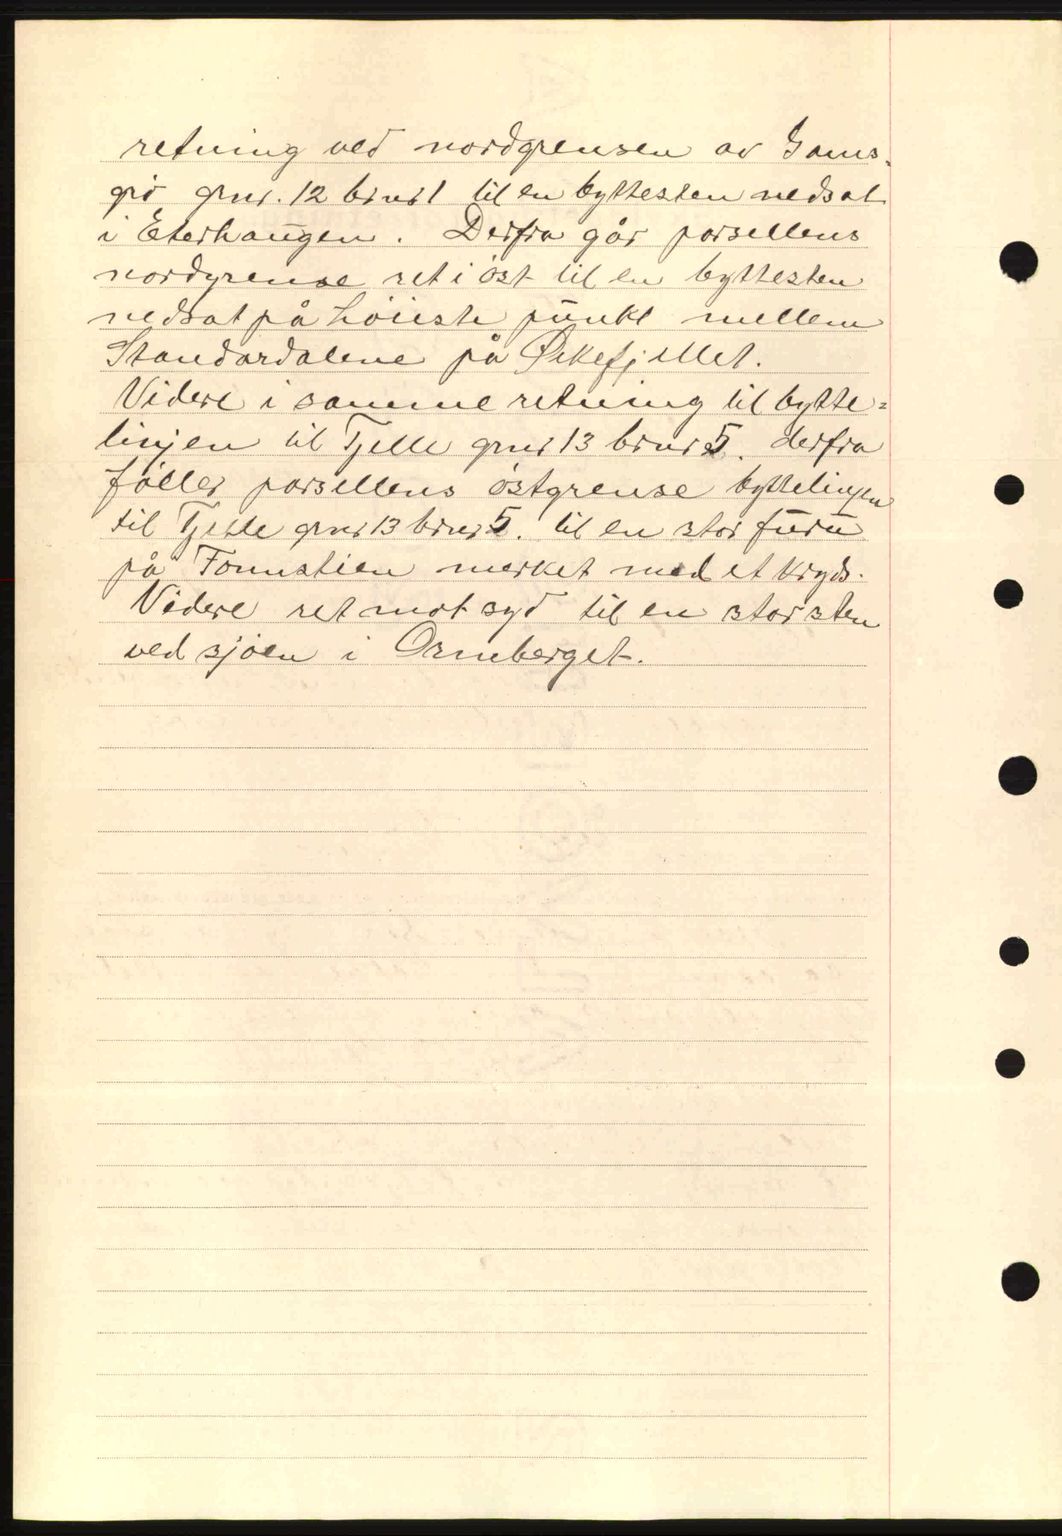 retning ved nordgrensen av Gams-
grö grnr. 12 brnr 1 til en byttesten nedsat
i Eterhaugen. Derfra går parsellens
nordgrense ret i öst til en byttesten
nedsat på höieste punkt mellem
Standardalene på Ørkefjellet.
Videre i samme retning til bytte=
linjen til Tjelle grnr 13 brnr 5. derfra
föller parsellens östgrense byttelinjen
til Tjelle grnr 13 brnr 5. til en stor furu
på Fonnstien merket med et kryds.
Videre ret mot syd til en stor sten
ved sjöen i Ørneberget.